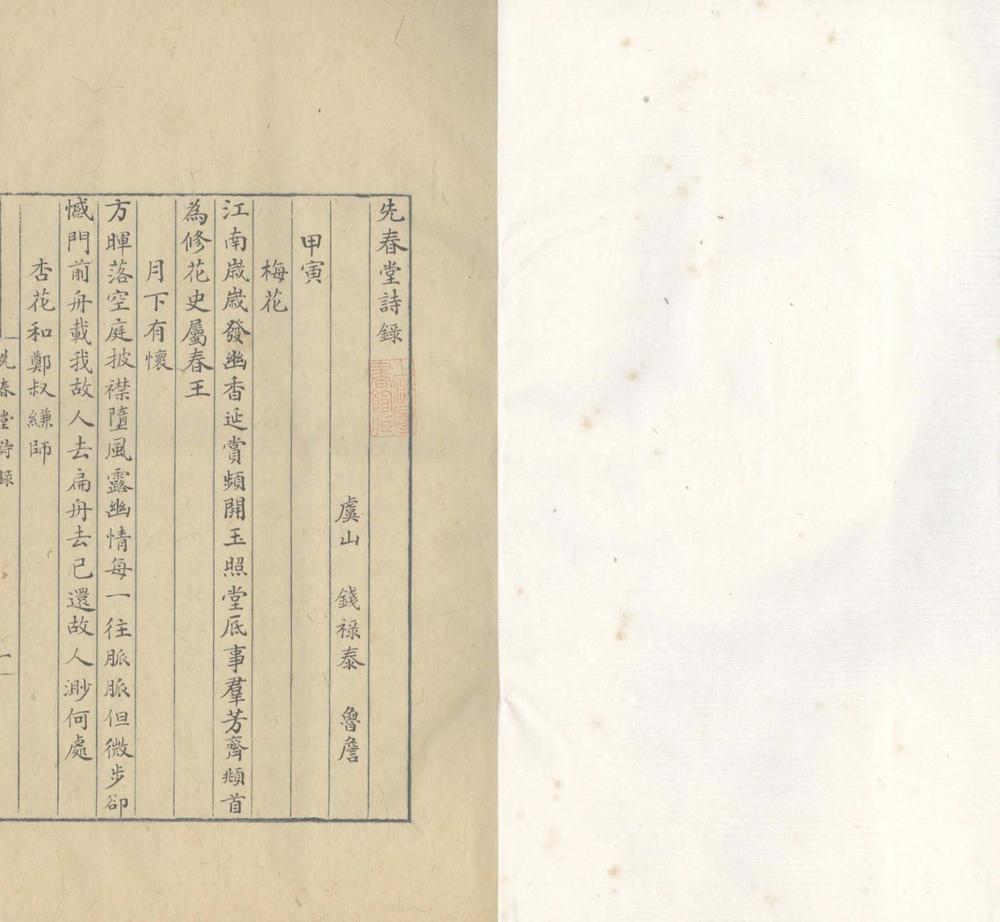 先春堂詩錄
虞山 錢祿泰 魯詹
甲寅
梅花
江南歲歲發幽香延賞頻開玉照堂底事羣芳齊頫首
為修花史屬春王
月下有懷
方暉落空庭披襟墮風露幽情每一往脈脈但微步卻
憾門前舟載我故人去扁舟去已還故人渺何處
杏花和鄭叔縑師
先春堂詩錄
一